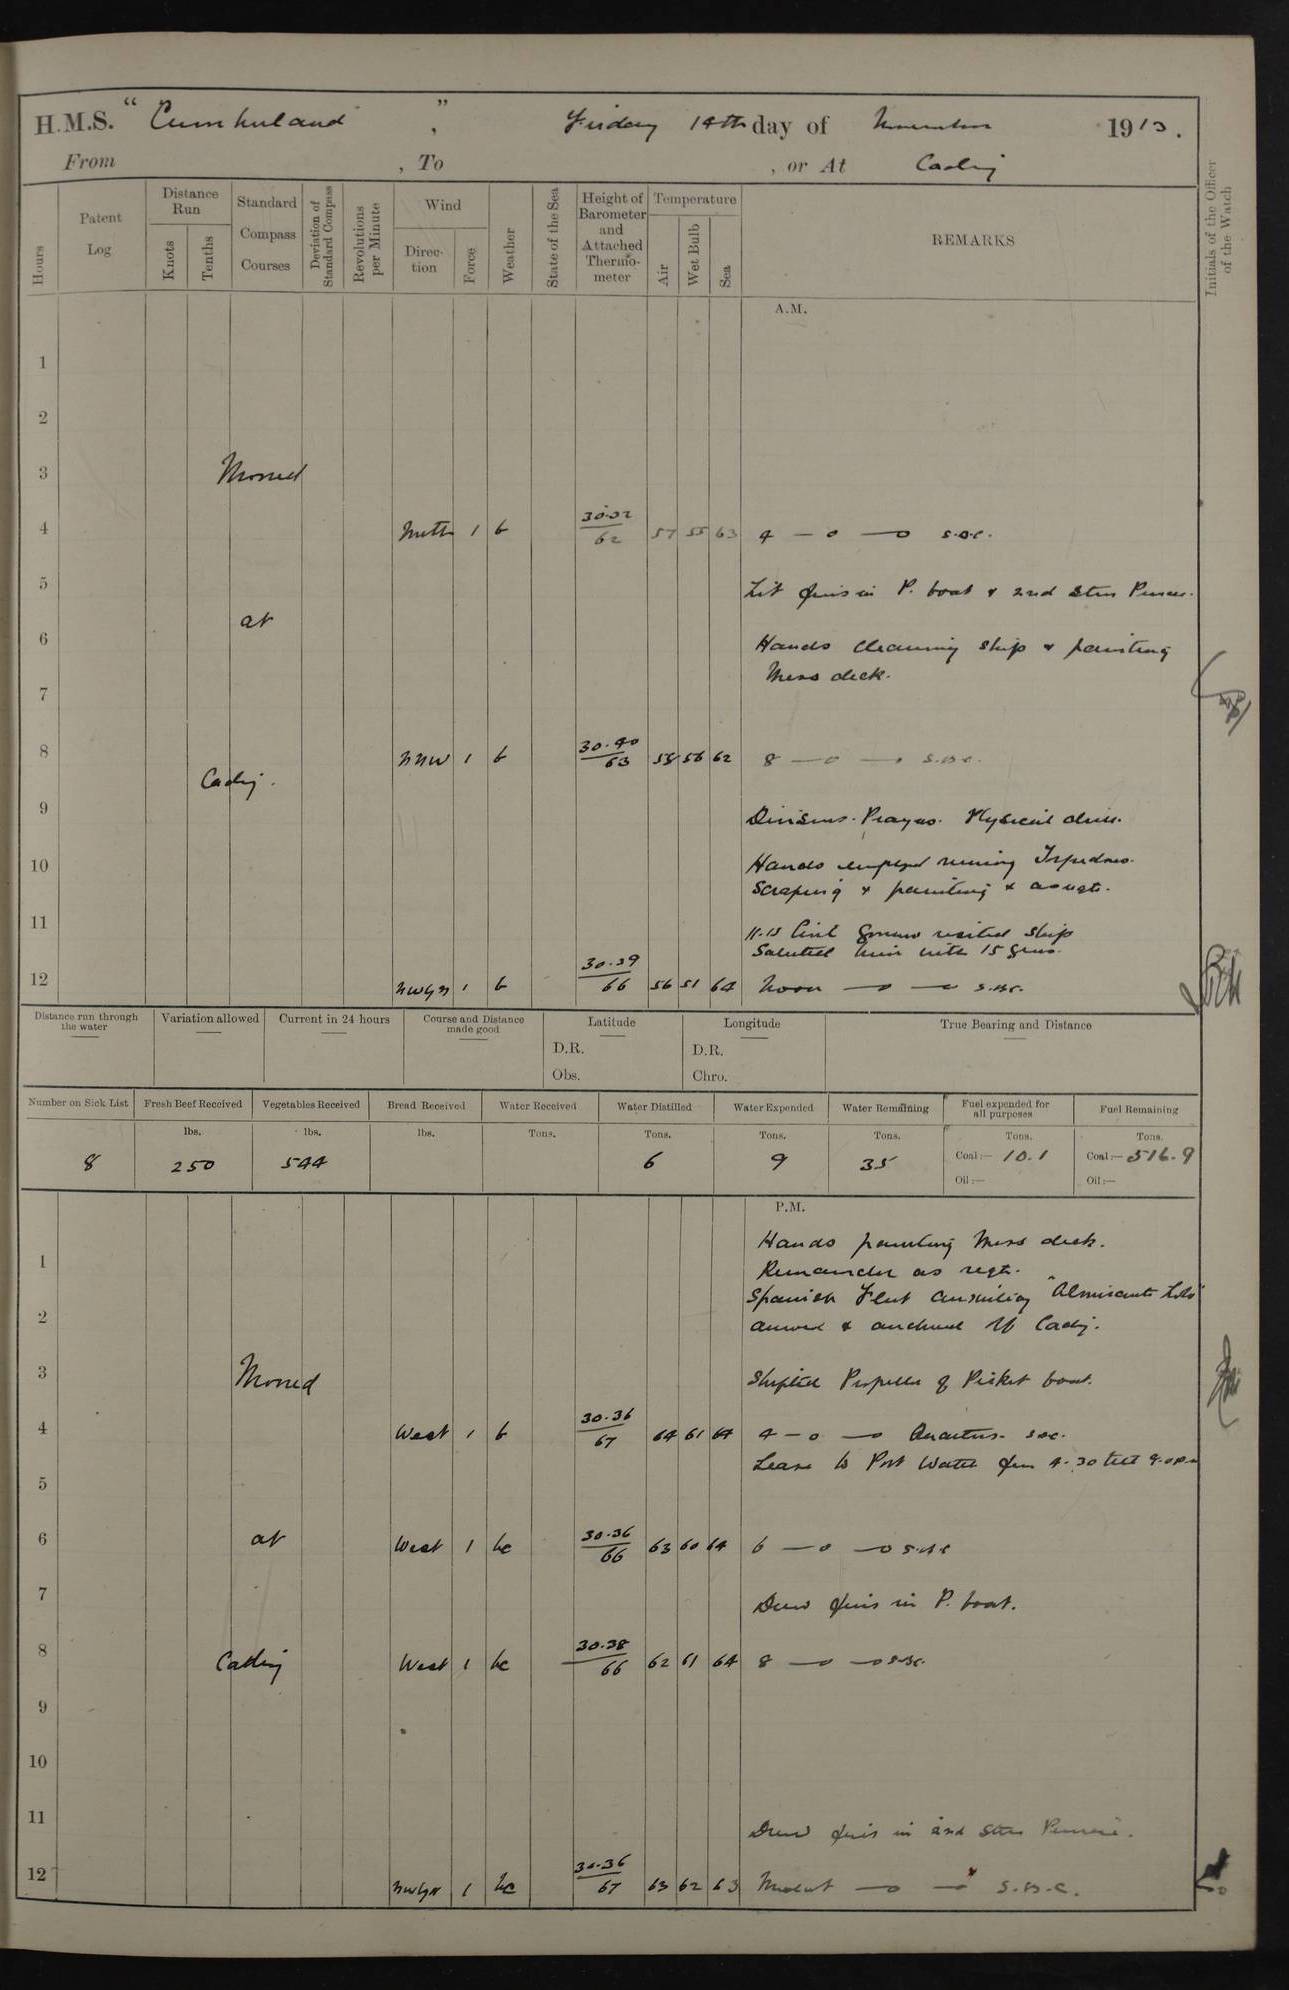 H.M.S. “ Cumberland ” , Friday 14th day of November 1913.
From , To , or At Cadiz
Hours
Patent Log
Distance Run
Knots
Tenths
Standard Compass Courses
Deviation of Standard Compass
Revolutions per Minute
Wind
Direction
Force
Weather
State of the Sea
Height of Barometer and Attached Thermometer
Temperature
Air
Wet Bulb
Sea
REMARKS
Initials of the Officer of the Watch
A.M.
1
2
3 Moored
4 North 1 b 30.32/62 57 55 63 4 — o — o s.b.c.
5 Lit fires in P. boat & 2nd Stm Pinnace.
at
6 Hands cleaning ship & painting
Mess deck.
7
8 NNW 1 b 30.40/63 58 56 62 8 — o — s.b.c.
Cadiz.
9 Divisions. Prayers. Physical drill.
10 Hands employed running Torpedoes.
Scraping & painting & as reqte.
11 11.15 Civil Governor visited ship
Saluted him with 15 guns.
12 NWbyN 1 b 30.39/66 56 51 64 Noon — o — s.b.c.
Distance run through the water
Variation allowed
Current in 24 hours
Course and Distance made good
Latitude
D.R.
Obs.
Longitude
D.R.
Chro.
True Bearing and Distance
Number on Sick List
Fresh Beef Received
Vegetables Received
Bread Received
Water Received
Water Distilled
Water Expended
Water Remaining
Fuel expended for all purposes
Fuel Remaining
lbs. lbs. lbs. Tons. Tons. Tons. Tons. Tons. Tons.
8 250 544 6 9 35 Coal:— 10.1 Coal:— 516.9
Oil:— Oil:—
P.M.
Hands painting Mess deck.
1 Remainder as reqte.
Spanish Fleet auxiliary "Almirante Lobo"
2 arrived & anchored off Cadiz.
3 Moored Shifted Propeller of Picket boat.
4 West 1 b 30.36/67 64 61 64 4 — o — o Quarters. s.b.c.
Leave to Port Watch from 4.30 till 9.0 p.m
5
6 at West 1 bc 30.36/66 63 60 64 6 — o — o s.b.c
7 Drew fires in P. boat.
8 Cadiz West 1 bc 30.38/66 62 61 64 8 — o — o s.b.c.
9
10
11 Drew fires in 2nd Stm Pinnace.
12 NWbyN 1 bc 30.36/67 63 62 63 Midnt — o — s.b.c.